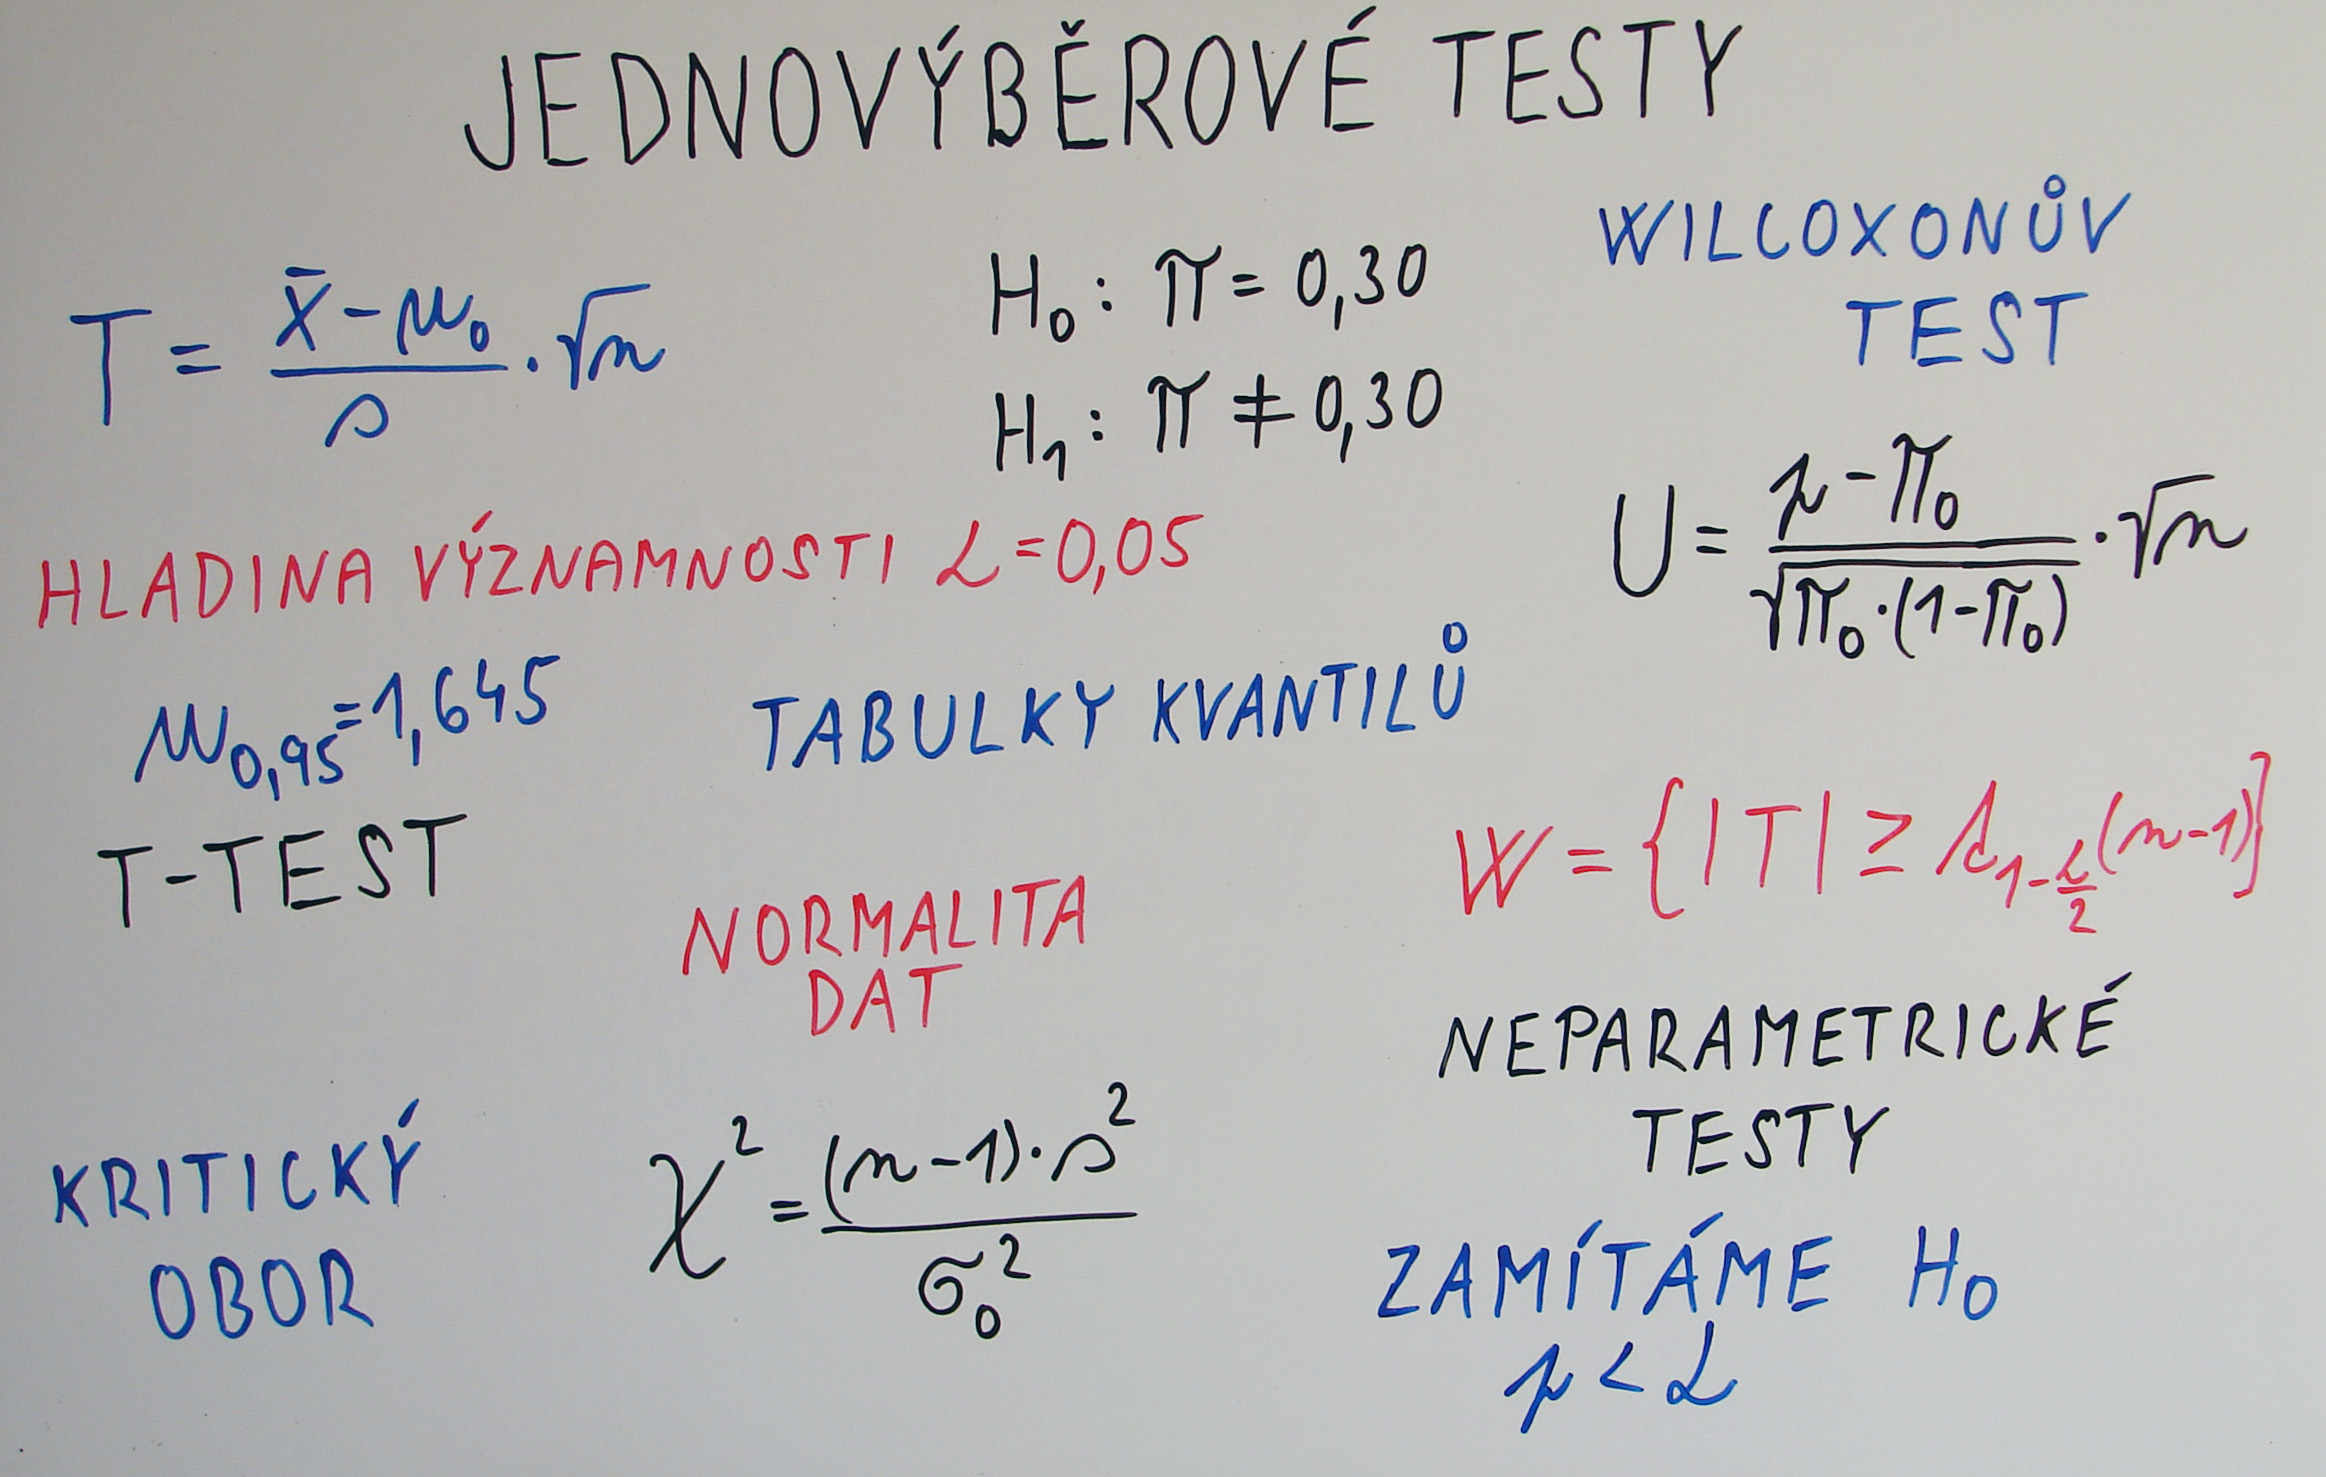 JEDNOVÝBĚROVÉ TESTY
WILCOXONŮV
TEST
T = (x̄ - μ₀)/s · √n
H₀: π = 0,30
H₁: π ≠ 0,30
U = (p - π₀)/√(π₀·(1-π₀)) · √n
HLADINA VÝZNAMNOSTI α = 0,05
u₀,₉₅ = 1,645
TABULKY KVANTILŮ
T-TEST
W = {|T| ≥ t₁₋α/₂(n-1)}
NORMALITA
DAT
NEPARAMETRICKÉ
TESTY
KRITICKÝ
OBOR
χ² = (n-1)·s²/σ₀²
ZAMÍTÁME H₀
p < α